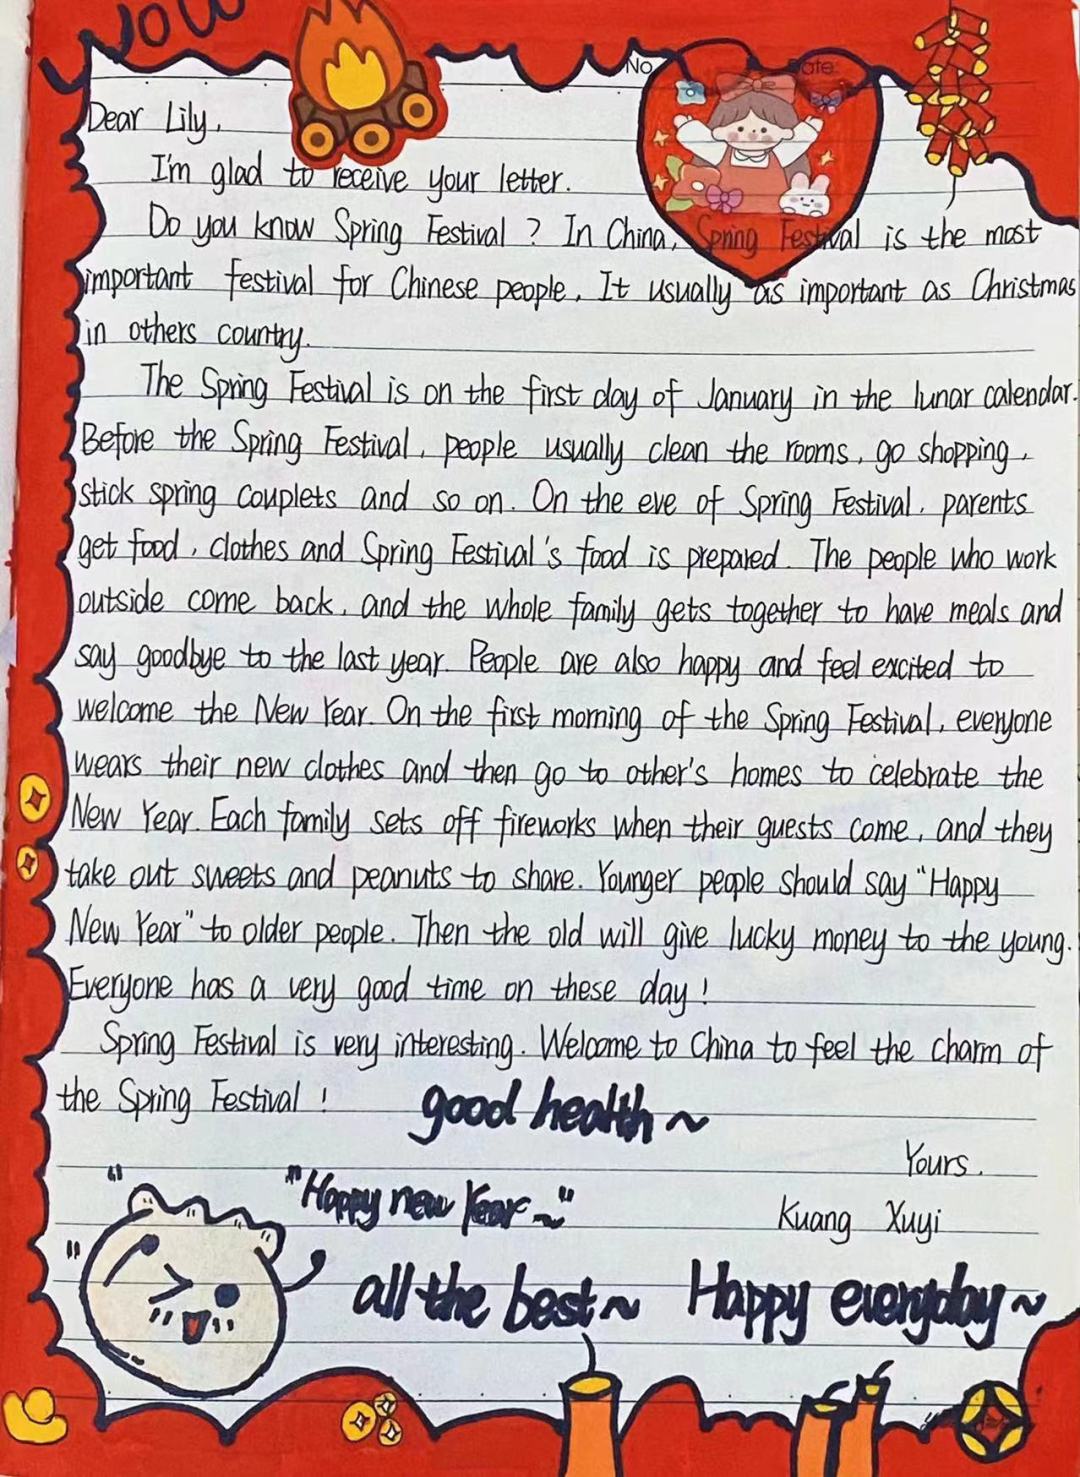 No.
Date:
Dear Lily,
I'm glad to receive your letter.
Do you know Spring Festival ? In China, Spring Festival is the most
important festival for Chinese people. It usually as important as Christmas
in others country.
The Spring Festival is on the first day of January in the lunar calendar.
Before the Spring Festival, people usually clean the rooms, go shopping,
stick spring couplets and so on. On the eve of Spring Festival, parents
get food, clothes and Spring Festival's food is prepared. The people who work
outside come back, and the whole family gets together to have meals and
say goodbye to the last year. People are also happy and feel excited to
welcome the New Year. On the first morning of the Spring Festival, everyone
wears their new clothes and then go to other's homes to celebrate the
New Year. Each family sets off fireworks when their guests come, and they
take out sweets and peanuts to share. Younger people should say "Happy
New Year" to older people. Then the old will give lucky money to the young.
Everyone has a very good time on these day !
Spring Festival is very interesting. Welcome to China to feel the charm of
the Spring Festival !
good health~
Yours.
"Happy new Year~"
Kuang Xuyi
all the best~
Happy everyday~